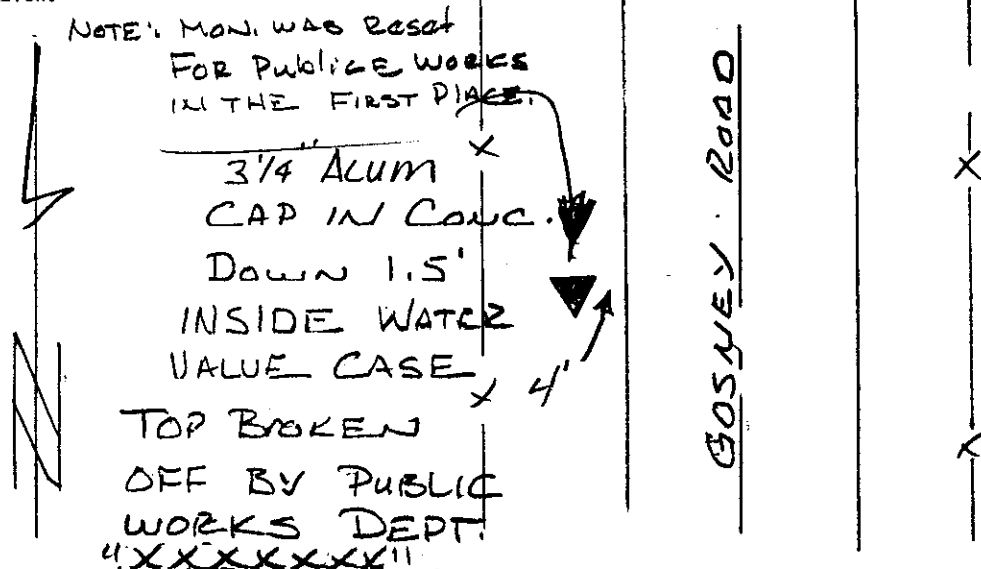 NOTE: MON. WAS Reset
FOR PUblicE WORKS
IN THE FIRST PlACE.
3 1/4" ALUM
CAP IN CONC.
DOWN 1.5'
INSIDE WATER
VALUE CASE
TOP BROKEN
OFF BY PUBLIC
WORKS DEPT.
"XXXXXXX"
4'
GOSNEY ROAD
N